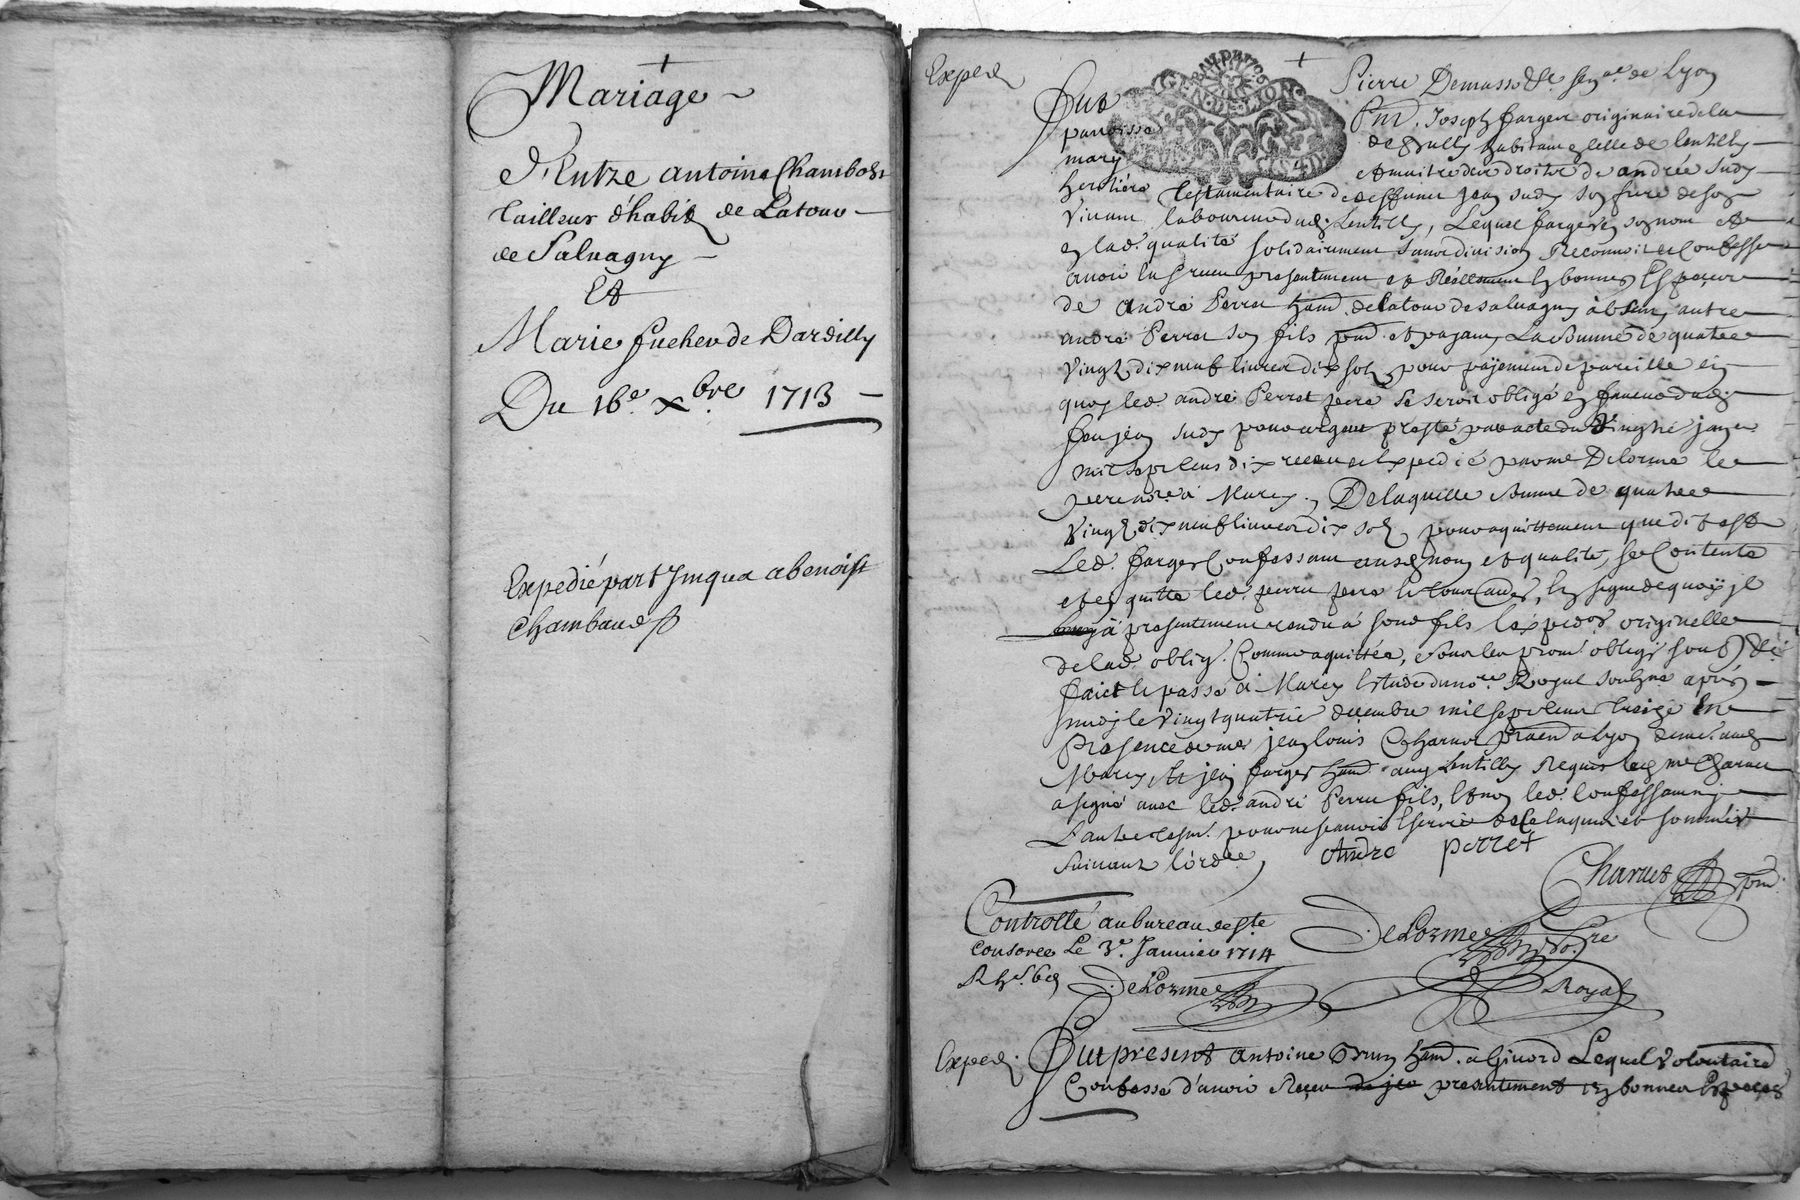 Mariage
d'Entze antoine Chambost
tailleur d'habit de Latour
de Salvagny
Et
Marie fucher de Dardilly
Du 16e Xbre 1713
Expedié part Jmqua a benoist
Chambaud
Exped
GEN DE LYON
Pierre Demasso De Seneal de Lyon
Fut pnt Joseph farges originaire de la
parroisse de habitant a celle de lentilly
mary et maitre des droits de andrée sudy
heritiere testamentaire de deffunct jean sudy son frere de son
vivant laboureur dud. Lentilly, Lequel farges en son nom et
en lad. qualité solidairement sans division Reconnoit et Confesse
avoir eu et receu presentement et Réellement en bonnes Especes
de andré Perret hant. de la tour de salvagny absent, autre
andré Perret son fils pnt. et payant La Somme de quatre
vingt dix neuf livres dix sols pour payement de pareille
quoy led. andré Perret pere se seroit obligé en faveur dud.
feu jean sudy pour argent presté par acte du vingt janer
mil sept cens dix receu et Expedié par me Delorme le
pere nore a Marcy, De laquelle somme de quatre
vingt dix neuf livres dix sols pour aquittement que dit est
Led. farges Confessant ausd. nom et qualité, se Contente
et en quitte led. perret pere et tous autres, En signe de quoy il
a presentement rendu a sond. fils l'expedon originelle
de lad. oblign. Comme aquittée, sous les prom. oblign. sous &c.
faict et passé a Marcy Estude du nore Royal soubsné après
midy le vingt quatrie decembre mil sept cens treize En
Presence de me jean louis Charvet praen a Lyon demt. aud.
Marcy et jean farges hant. aud. Lentilly Requis led. me Charvet
a signé avec led. andré Perret fils, Et non led. Confessant ni
L'autre tesm. pour ne sçavoir Escrire de ce Enquis et sommés
suivant l'orde.
Andre perret
Charvet
Controllé au bureau de ste
consorce Le 3e. Janvier 1714
DeLorme Nore
DeLorme
Royal
Exped.
Fut present Antoine Brun hant. a Givord Lequel volontaire
Confesse d'avoir Receu presentement en bonnes Especes